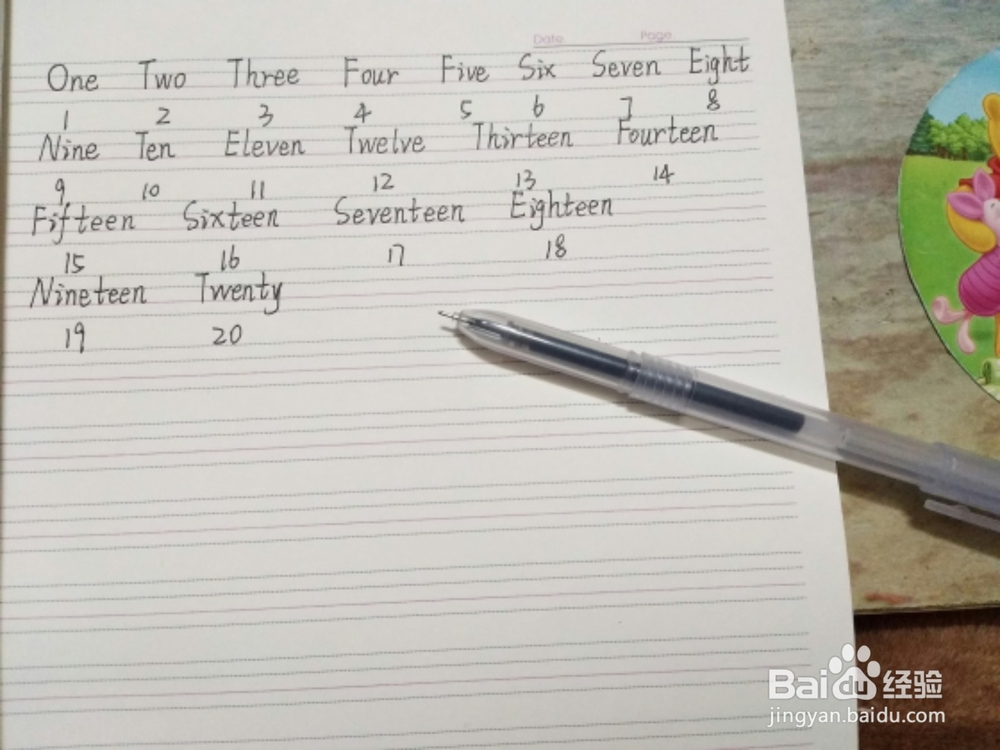 Date Page
One Two Three Four Five Six Seven Eight
1 2 3 4 5 6 7 8
Nine Ten Eleven Twelve Thirteen Fourteen
9 10 11 12 13 14
Fifteen Sixteen Seventeen Eighteen
15 16 17 18
Nineteen Twenty
19 20
Baidu 经验
jingyan.baidu.com